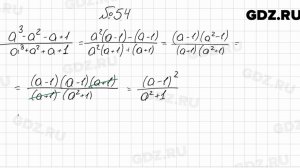 GDZ.RU
№54
(a³-a²-a+1)/(a³+a²+a+1) = (a²(a-1)-(a-1))/(a²(a+1)+(a+1)) = ((a-1)(a²-1))/((a+1)(a²+1)) =
= ((a-1)(a-1)(a+1))/((a+1)(a²+1)) = (a-1)²/(a²+1)
GDZ.RU